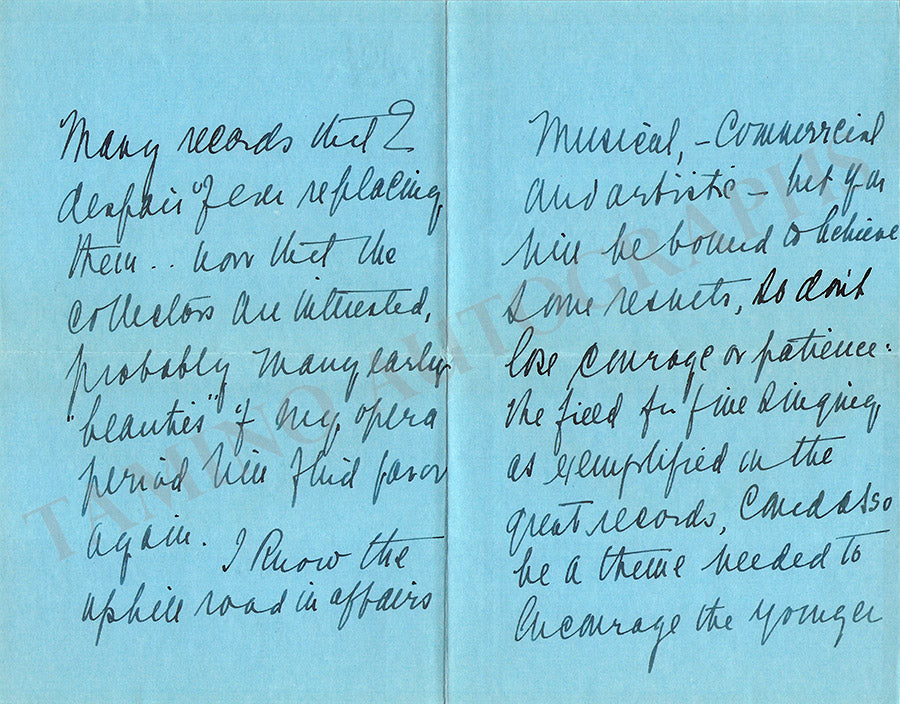 Many records that I
despair of ever replacing
them.. now that the
collectors are interested,
probably many early
"beauties" of my opera
period will find favor
again.
I know the
uphill road in affairs
Musical, - Commercial
and artistic - but you
will be bound to achieve
some results, so don't
lose courage or patience:
the field for fine singing,
as exemplified in the
great records, could also
be a theme needed to
encourage the younger
TAMINO AUTOGRAPHS